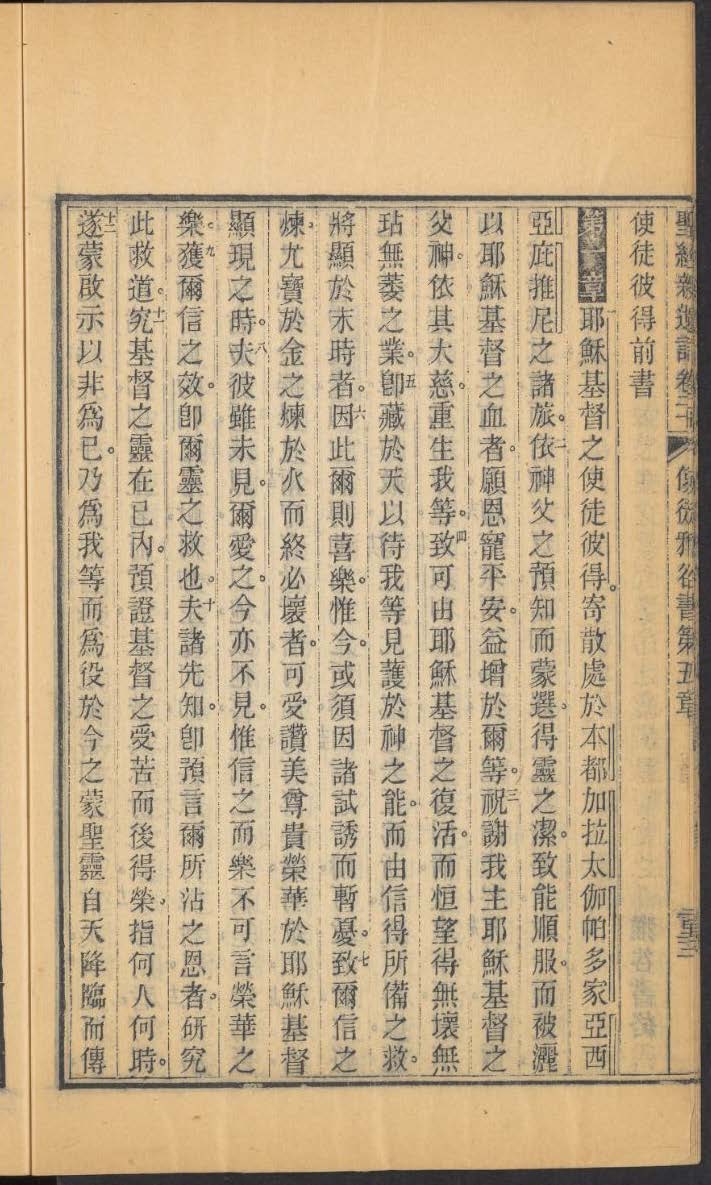 聖經新遺詔卷二 使徒雅各書第五章
使徒彼得前書
第一章一耶穌基督之使徒彼得。寄散處於本都加拉太伽帕多家亞西
亞庇推尼之諸旅。二依神父之預知而蒙選。得靈之潔。致能順服。而被灑
以耶穌基督之血者。願恩寵平安。益增於爾等。三祝謝我主耶穌基督之
父神。依其大慈。重生我等。四致可由耶穌基督之復活。而恒望得無壞無
玷無萎之業。五卽藏於天以待我等見護於神之能。而由信得所備之救。
將顯於末時者。六因此爾則喜樂。惟今。或須因諸試誘而暫憂。七致爾信之
煉。尤寶於金之煉於火而終必壞者。可受讚美尊貴榮華於耶穌基督
顯現之時。八夫彼雖未見。爾愛之。今亦不見。惟信之而樂不可言榮華之
樂。九獲爾信之效。卽爾靈之救也。十夫諸先知。卽預言爾所沾之恩者。研究
此救道。十一究基督之靈在已內。預證基督之受苦而後得榮。指何人何時。
十二遂蒙啟示以非爲已。乃爲我等而爲役於今之蒙聖靈自天降臨而傳